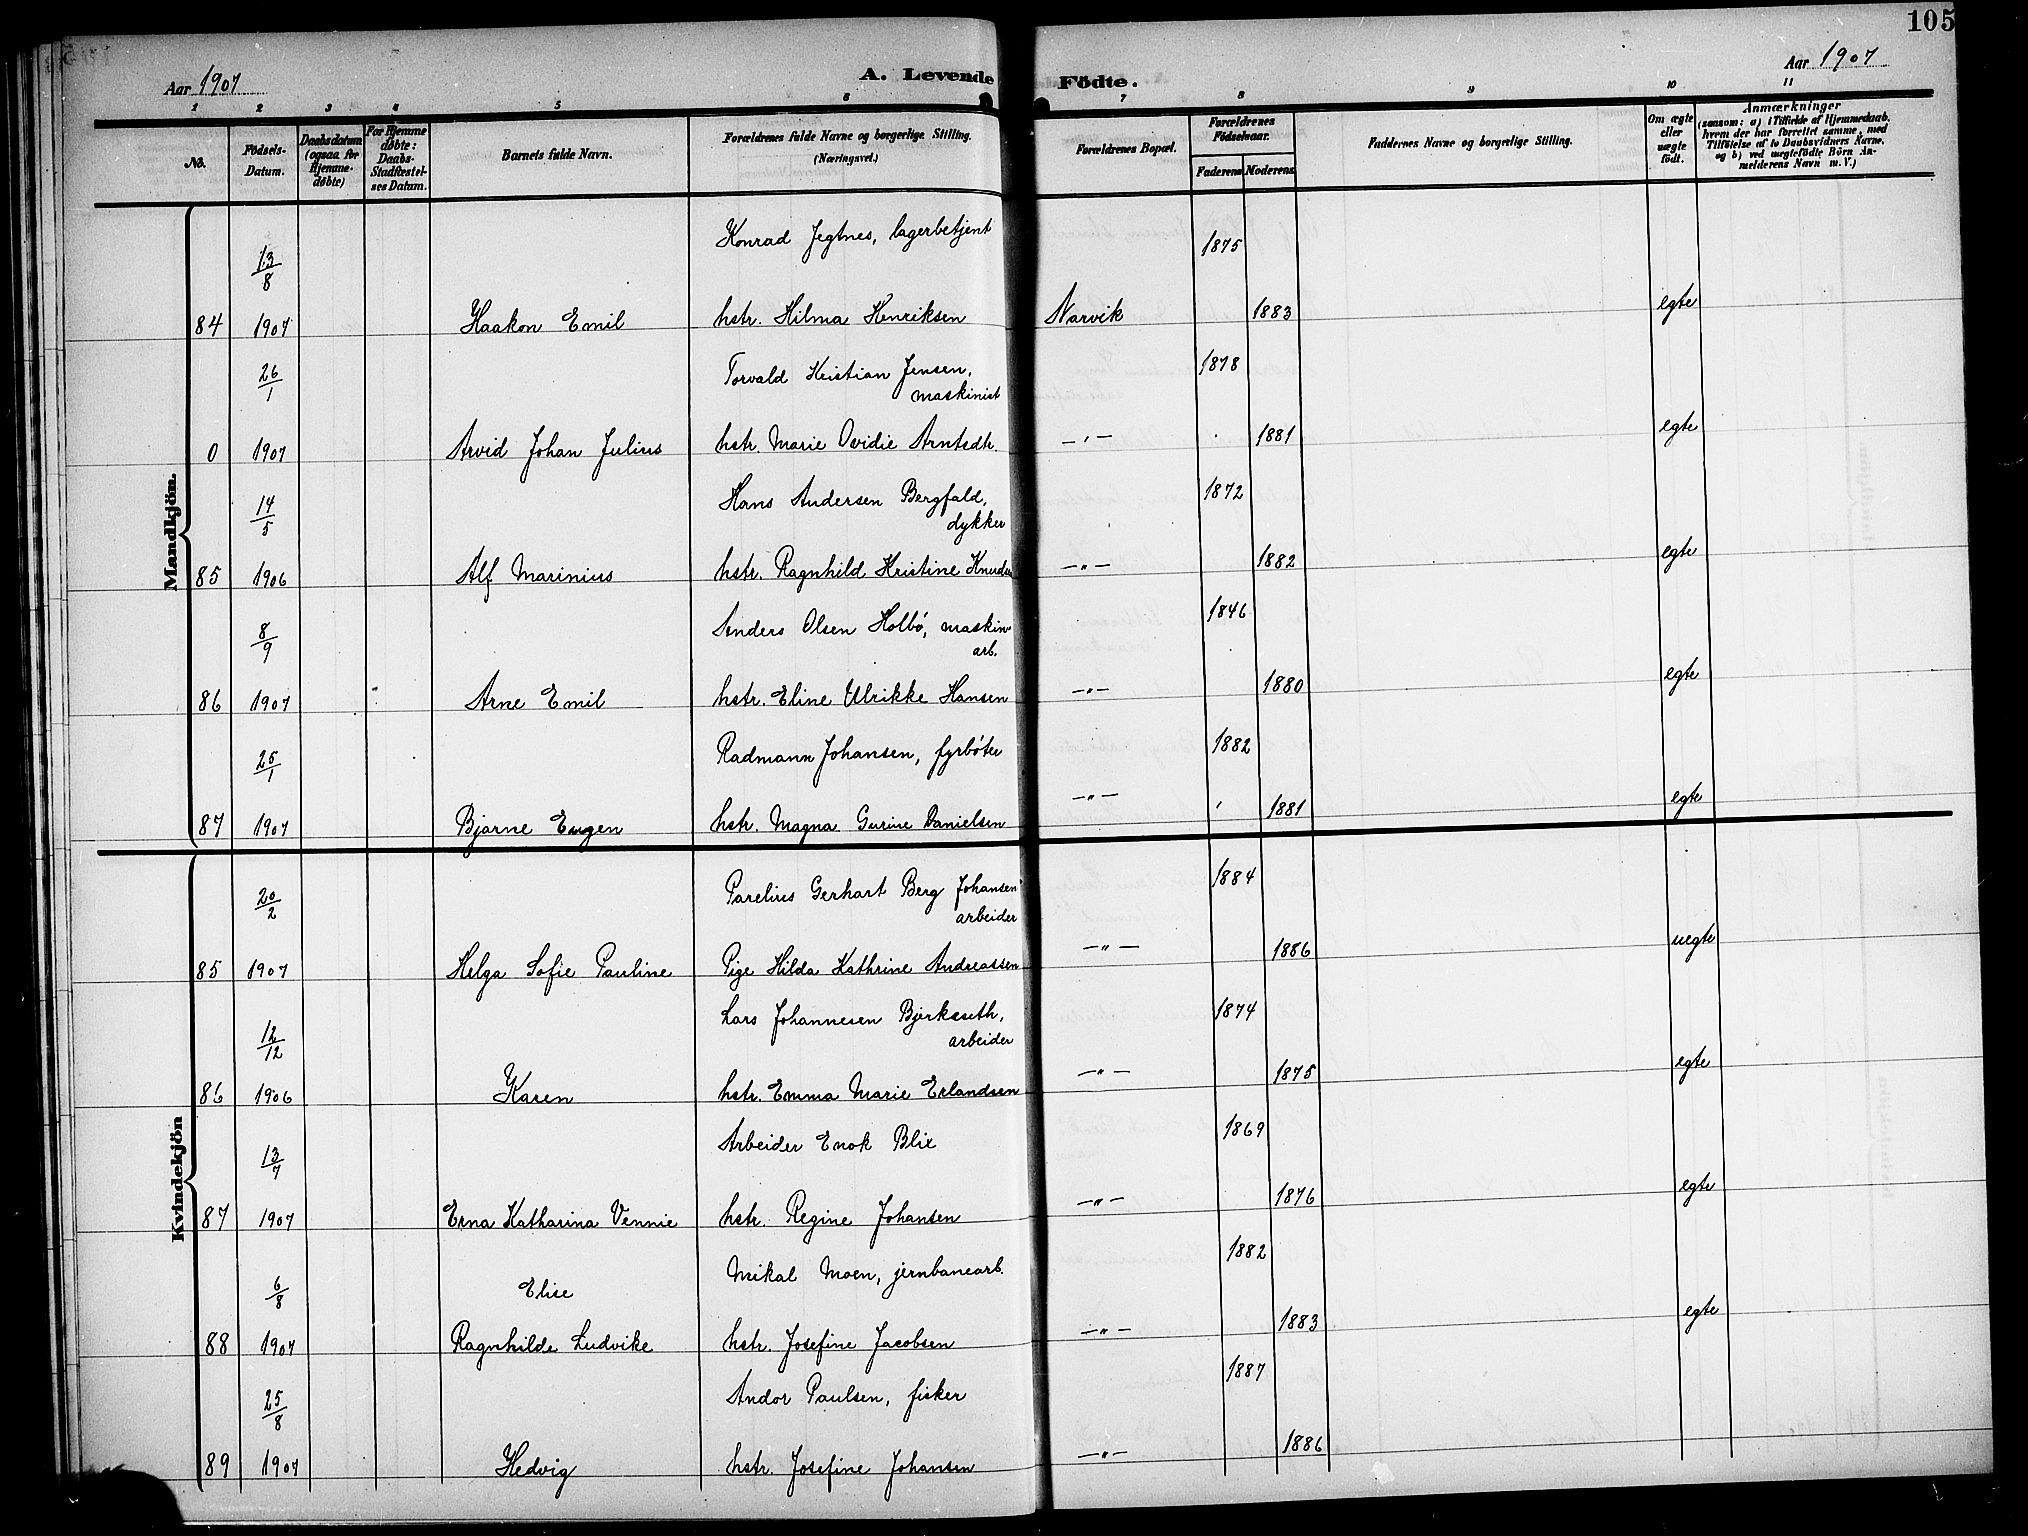 105
Aar 1907
A. Levende Födte.
Aar 1907
1 2 3 4 5 6 7 8 9 10 11
No.
Födsels-Datum.
Daabsdatum (ogsaa for Hjemme-døbte)
For Hjemme døbte: Daabs-Stadfæstel-ses Datum.
Barnets fulde Navn.
Forældrenes fulde Navne og borgerlige Stilling.
(Næringsvei.)
Forældrenes Bopæl.
Forældrenes Födselsaar.
Faderens Moderens
Faddernes Navne og borgerlige Stilling.
Om ægte eller uægte födt.
Anmærkninger
(saasom: a) i Tilfælde af Hjemmedaab.
hvem der har forrettet samme, med
Tilföielse af to Daabsvidners Navne,
og b) ved uægtefödte Börn An-
melderens Navn m. V.)
Mandkjön.
Konrad Jegtnes, lagerbetjent 1875
13/8
84 1907 Haakon Emil hstr. Hilma Henriksen Narvik 1883 egte
26/1 Torvald Kristian Jensen, 1878
maskinist
0 1907 Arvid Johan Julius hstr. Marie Ovidie Arntsdtr. -"- 1881 egte
14/5 Hans Andersen Bergfald, 1872
dykker
85 1906 Alf Marinius hstr. Ragnhild Kristine Knudsen -"- 1882 egte
8/9 Anders Olsen Holbö, maskin- 1846
arb.
86 1907 Arne Emil hstr. Eline Ulrikke Hansen -"- 1880 egte
25/1 Radmann Johansen, fyrböter 1882
87 1907 Bjarne Eugen hstr. Magna Gurine Danielsen -"- 1881 egte
Kvindekjön
20/2 Parelius Gerhart Berg Johansen 1884
arbeider
85 1907 Helga Sofie Pauline Pige Hilda Kathrine Andreassen -"- 1886 uegte
12/12 Lars Johannesen Bjerkseth, 1874
arbeider
86 1906 Karen hstr. Emma Marie Erlandsen -"- 1875 egte
13/7 Arbeider Enok Blix 1869
87 1907 Erna Katharina Vennie hstr. Regine Johansen -"- 1876 egte
6/8 Mikal Moen, jernbanearb. 1882
Elise
88 1907 Ragnhilde Ludvike hstr. Josefine Jacobsen -"- 1883 egte
25/8 Andor Paulsen, fisker 1887
89 1907 Hedvig hstr. Josefine Johansen -"- 1886